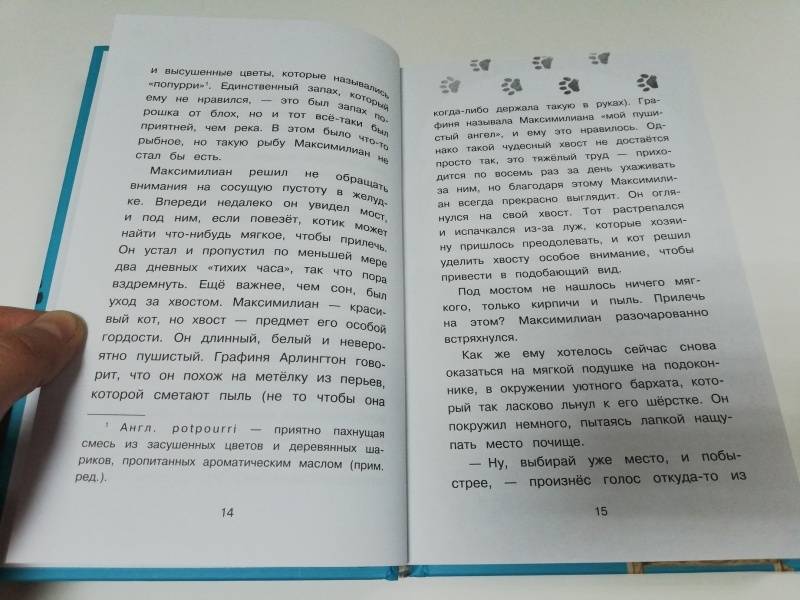 и высушенные цветы, которые назывались
«попурри»¹. Единственный запах, который
ему не нравился, — это был запах по-
рошка от блох, но и тот всё-таки был
приятней, чем река. В этом было что-то
рыбное, но такую рыбу Максимилиан не
стал бы есть.
Максимилиан решил не обращать
внимания на сосущую пустоту в желуд-
ке. Впереди недалеко он увидел мост,
и под ним, если повезёт, котик может
найти что-нибудь мягкое, чтобы прилечь.
Он устал и пропустил по меньшей мере
два дневных «тихих часа», так что пора
вздремнуть. Ещё важнее, чем сон, был
уход за хвостом. Максимилиан — краси-
вый кот, но хвост — предмет его особой
гордости. Он длинный, белый и неверо-
ятно пушистый. Графиня Арлингтон гово-
рит, что он похож на метёлку из перьев,
которой сметают пыль (не то чтобы она
¹ Англ. potpourri — приятно пахнущая
смесь из засушенных цветов и деревянных ша-
риков, пропитанных ароматическим маслом (прим.
ред.).
14
когда-либо держала такую в руках). Гра-
финя называла Максимилиана «мой пуши-
стый ангел», и ему это нравилось. Од-
нако такой чудесный хвост не достаётся
просто так, это тяжёлый труд — прихо-
дится по восемь раз за день ухаживать
за ним, но благодаря этому Максимили-
ан всегда прекрасно выглядит. Он огля-
нулся на свой хвост. Тот растрепался
и испачкался из-за луж, которые хозяи-
ну пришлось преодолевать, и кот решил
уделить хвосту особое внимание, чтобы
привести в подобающий вид.
Под мостом не нашлось ничего мяг-
кого, только кирпичи и пыль. Прилечь
на этом? Максимилиан разочарованно
встряхнулся.
Как же ему хотелось сейчас снова
оказаться на мягкой подушке на подокон-
нике, в окружении уютного бархата, кото-
рый так ласково льнул к его шёрстке. Он
покружил немного, пытаясь лапкой нащу-
пать место почище.
— Ну, выбирай уже место, и побы-
стрее, — произнёс голос откуда-то из
15